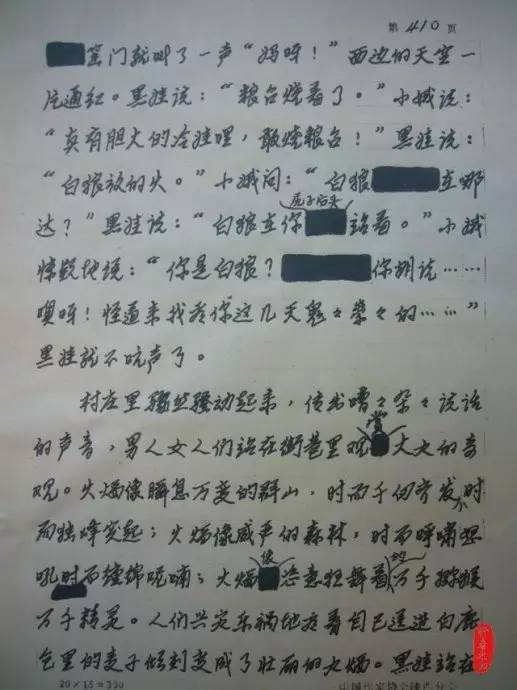 第410页
窑门就叫了一声“妈呀！”西边的天空一
片通红。黑娃说：“粮台烧着了。”小娥说：
“真有胆大的冷娃哩，敢烧粮台！”黑娃说：
“白狼放的火。”小娥问：“白狼在哪
达？”黑娃说：“白狼在你尻子后头站着。”小娥
惊疑地说：“你是白狼？你胡说……
噢呀！怪道来我看你这几天鬼々祟々的……”
黑娃就不吭声了。
村庄里骚动起来，传出嘈々杂々说话
的声音，男人女人们站在街巷里观赏大火的奇
观。火焰像瞬息万变的群山，时而千仞齐发，时
而独峰突起；火焰像威严的森林，时而呼啸怒
吼时而缠绵呢喃；火焰像恣意狂舞着的万千猕猴
万千精灵。人们兴灾乐祸地看着自己送进白鹿
仓里的麦子倾刻变成了壮丽的火焰。黑娃站在
20×15=300